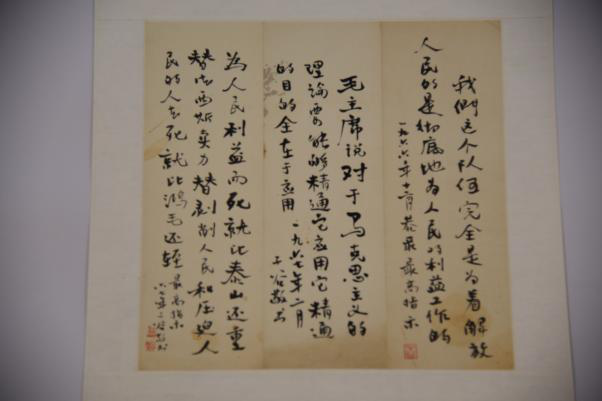 我們这个队伍完全是为着解放
人民的是彻底地为人民的利益工作的
一九六六年十月恭录最高指示
毛主席说对于马克思主义的
理论要能够精通它应用它精通
的目的全在于应用 一九六七年二月
敬书
为人民利益而死就比泰山还重
替法西斯卖力替剥削人民和压迫人
民的人去死就比鸿毛还轻 最高指示